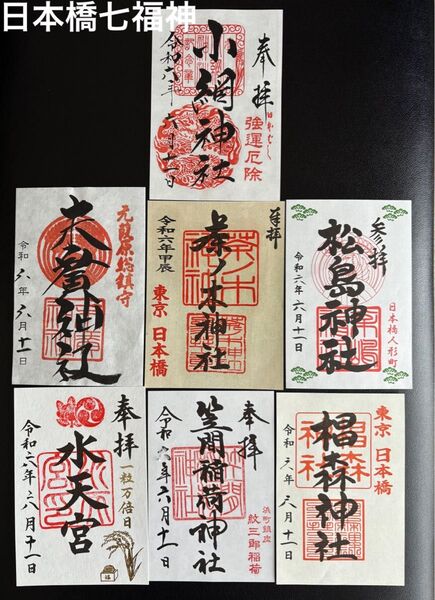 日本橋七福神
奉拝
小網神社
令和六年六月十一日
強運厄除
元吉原総鎮守
末廣神社
令和六年六月十一日
奉拝
茶ノ木神社
令和六年甲辰
東京 日本橋
参拝
松島神社
令和六年六月十一日
日本橋人形町
奉拝
水天宮
一粒万倍日
令和六年六月十一日
奉拝
笠間稲荷神社
令和六年六月十一日
浜町鎮座
紋三郎稲荷
東京 日本橋
椙森神社
令和六年六月十一日